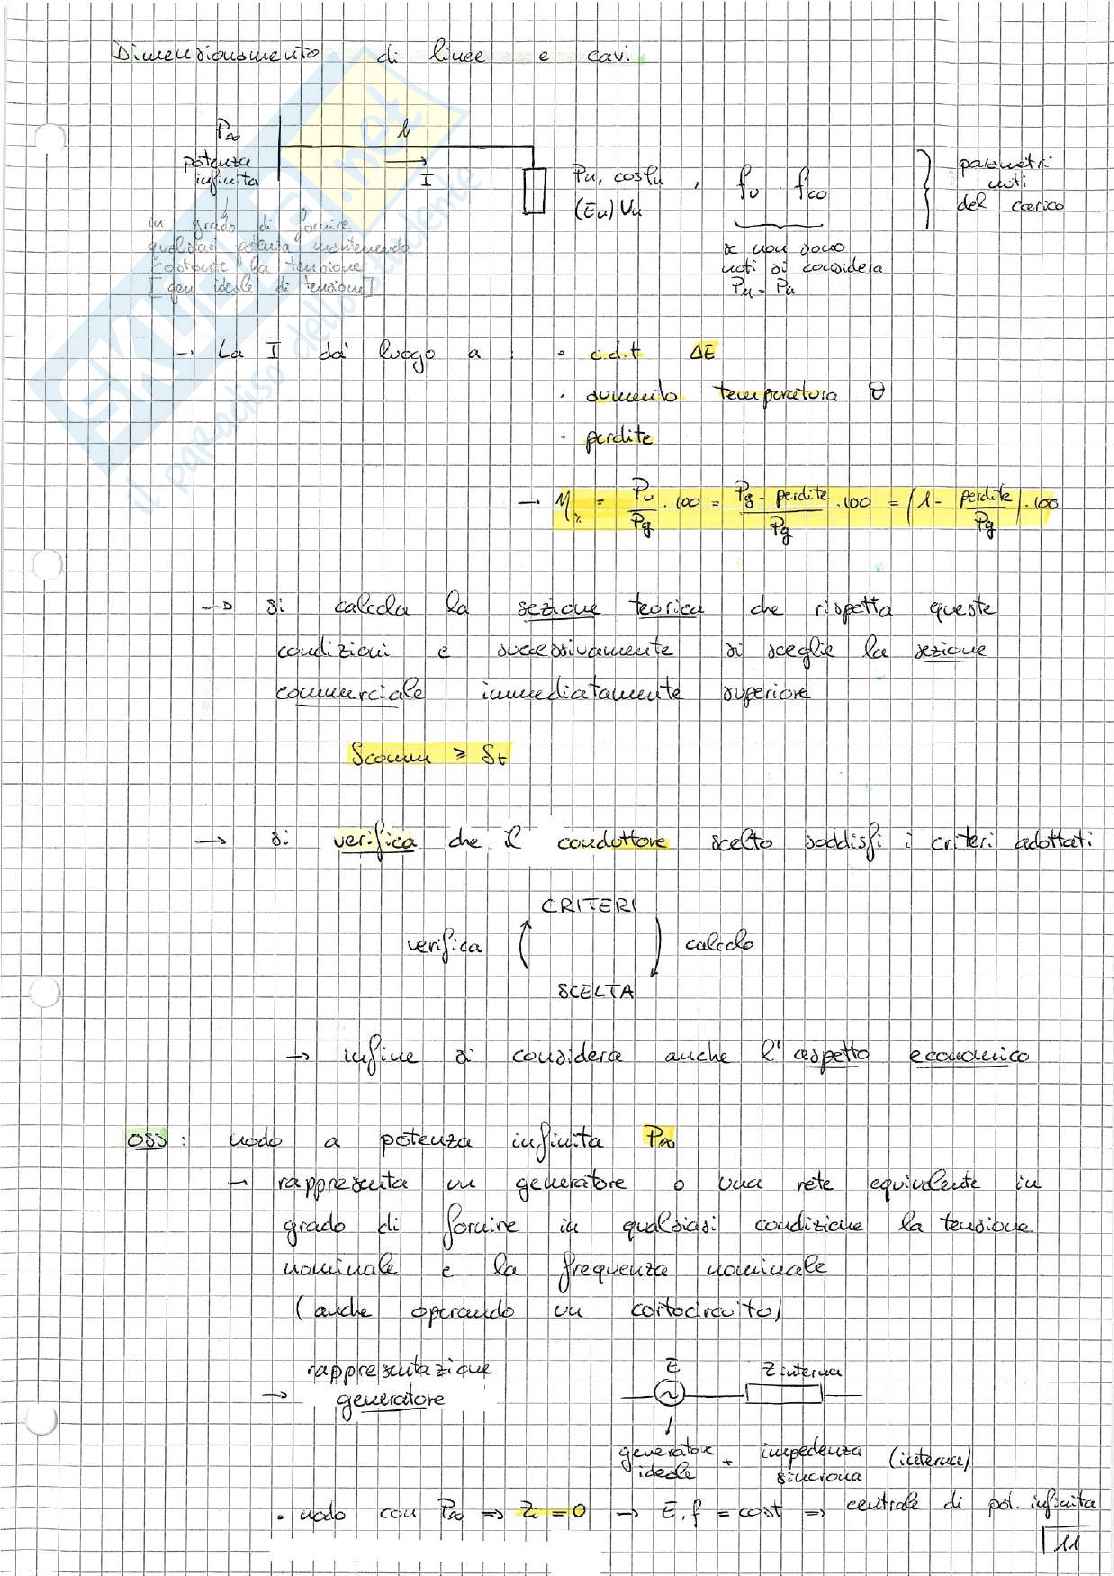 Dimensionamento di linee e cavi
P∞
potenza
infinita
l
I
Pu, cosfu, fu fco
(Eu) Vu
parametri
noti
del carico
in grado di fornire
qualsiasi potenza mantenendo
costante la tensione
[gen ideale di tensione]
se non sono
noti si considera
Pu = Pn
→ La I dà luogo a : • c.d.t ΔE
• aumento temperatura θ
• perdite
→ η% = Pu/Pg · 100 = (Pg - perdite)/Pg · 100 = (1 - perdite/Pg) · 100
→ si calcola la sezione teorica che rispetta queste
condizioni e successivamente si sceglie la sezione
commerciale immediatamente superiore
Scomm ≥ St
→ si verifica che il conduttore scelto soddisfi i criteri adottati
CRITERI
verifica calcolo
SCELTA
→ infine si considera anche l'aspetto economico
OSS: nodo a potenza infinita P∞
→ rappresenta un generatore o una rete equivalente in
grado di fornire in qualsiasi condizione la tensione
nominale e la frequenza nominale
(anche operando un cortocircuito)
→ rappresentazione
generatore
E Z interna
generatore
ideale
+ impedenza (interna)
sincrona
• nodo con P∞ ⇒ Zi = 0 → E, f = cost ⇒ centrale di pot. infinita
11
EXUENS.net
il paradiso dello studente